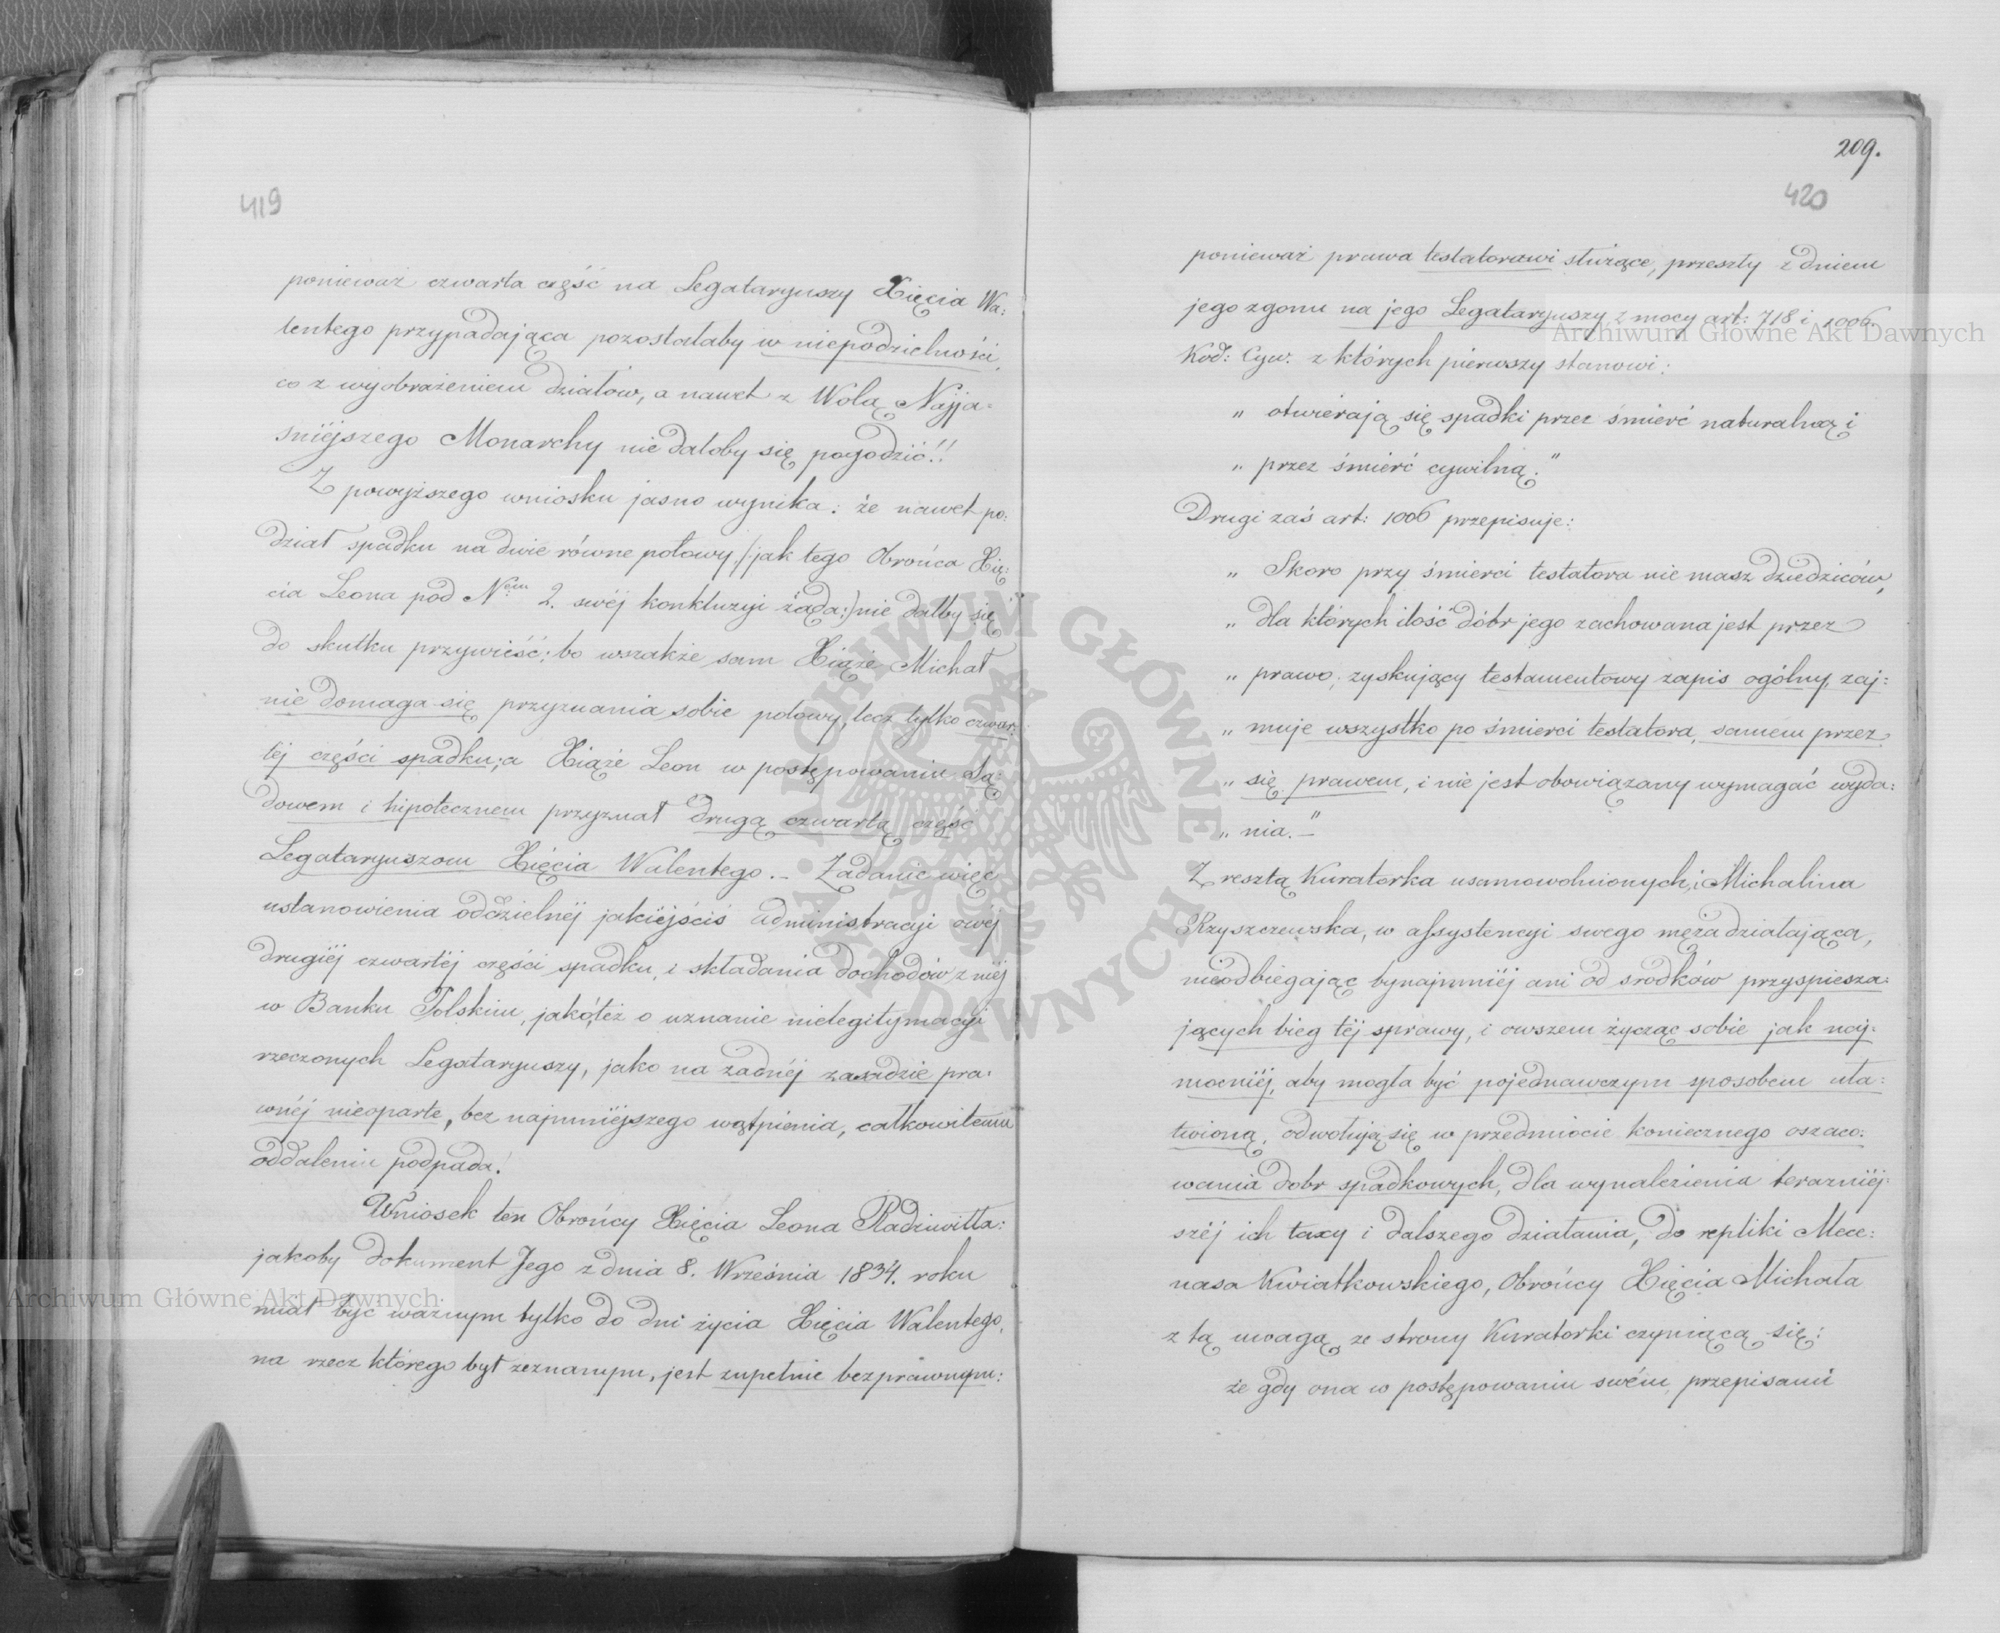 419
ponieważ czwarta część na Legataryuszy Xięcia Wa:
lentego przypadająca pozostałaby w niepodzielności,
co z wyobrażeniem działów, a nawet z Wolą Najja-
śniéjszego Monarchy nie dałoby się pogodzić!!
Z powyższego wniosku jasno wynika: że nawet po:
dział spadku na dwie równe połowy /:jak tego Obrońca Xię:
cia Leona pod Nem 2. swéj konkluzyi żąda:/ nie dałby się
do skutku przywieść; bo wszakże sam Xiąże Michał
nie domaga się przyznania sobie połowy, lecz tylko czwar:
téj części spadku; a Xiąże Leon w postępowaniu Są:
dowem i hipotecznem przyznał drugą czwartą część
Legataryuszom Xięcia Walentego. – Żądanie więc
ustanowienia oddzielnéj jakiéjściś administracyi owéj
drugiéj czwartéj części spadku, i składania dochodów z niéj
w Banku Polskim, jakoteż o uznanie nielegitymacyi
rzeczonych Legataryuszy, jako na żadnéj zasadzie pra-
wnéj nieoparte, bez najmniéjszego wątpienia, całkowitemu
oddaleniu podpada.
Wniosek ten Obrońcy Xięcia Leona Radziwiłła:
jakoby dokument Jego z dnia 8. Września 1834. roku
miał być ważnym tylko do dni życia Xięcia Walentego,
na rzecz którego był zeznanym, jest zupełnie bezprawnym:
209.
420
ponieważ prawa testatorowi służące, przeszły z dniem
jego zgonu na jego Legataryuszy z mocy art: 718 i 1006.
Kod: Cyw. z których pierwszy stanowi:
„ otwierają się spadki przez śmierć naturalną i
„ przez śmierć cywilną."
Drugi zaś art: 1006 przepisuje:
„ Skoro przy śmierci testatora nie masz dziedziców,
„ dla których ilość dóbr jego zachowana jest przez
„ prawo; zyskujący testamentowy zapis ogólny, zaj:
„ muje wszystko po śmierci testatora, samem przez
„ się prawem, i nie jest obowiązany wymagać wyda:
„ nia. –"
Z resztą Kuratorka usamowolnionych, i Michalina
Rzyszczewska, w assystencyi swego męża działająca,
nieodbiegając bynajmniéj ani od srodków przyspiesza:
jących bieg téj sprawy, i owszem życząc sobie jak naj:
mocniéj, aby mogła być pojednawczym sposobem uła:
twioną, odwołują się w przedmiocie koniecznego oszaco:
wania dobr spadkowych, dla wynalezienia teraźniéj-
széj ich taxy i dalszego działania, do repliki Mece:
nasa Kwiatkowskiego, Obrońcy Xięcia Michała
z tą uwagą ze strony Kuratorki czyniącą się:
że gdy ona w postępowaniu swém, przepisami
Archiwum Główne Akt Dawnych
Archiwum Główne Akt Dawnych
ARCHIWUM GŁÓWNE AKT DAWNYCH